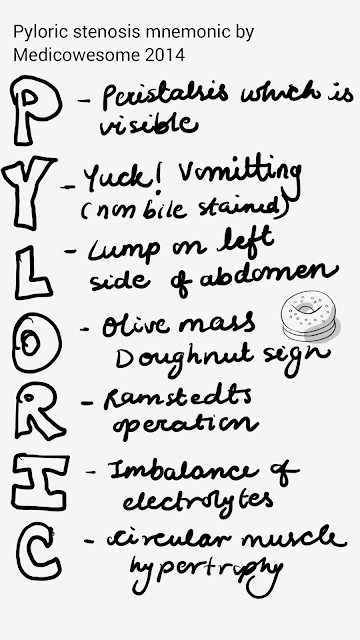 Pyloric stenosis mnemonic by
Medicowesome 2014
P - Peristalsis which is
visible
Y - Yuck! Vomitting
(non bile stained)
L - Lump on left
side of abdomen
O - Olive mass
Doughnut sign
R - Ramstedts
operation
I - Imbalance of
electrolytes
C - circular muscle
hypertrophy